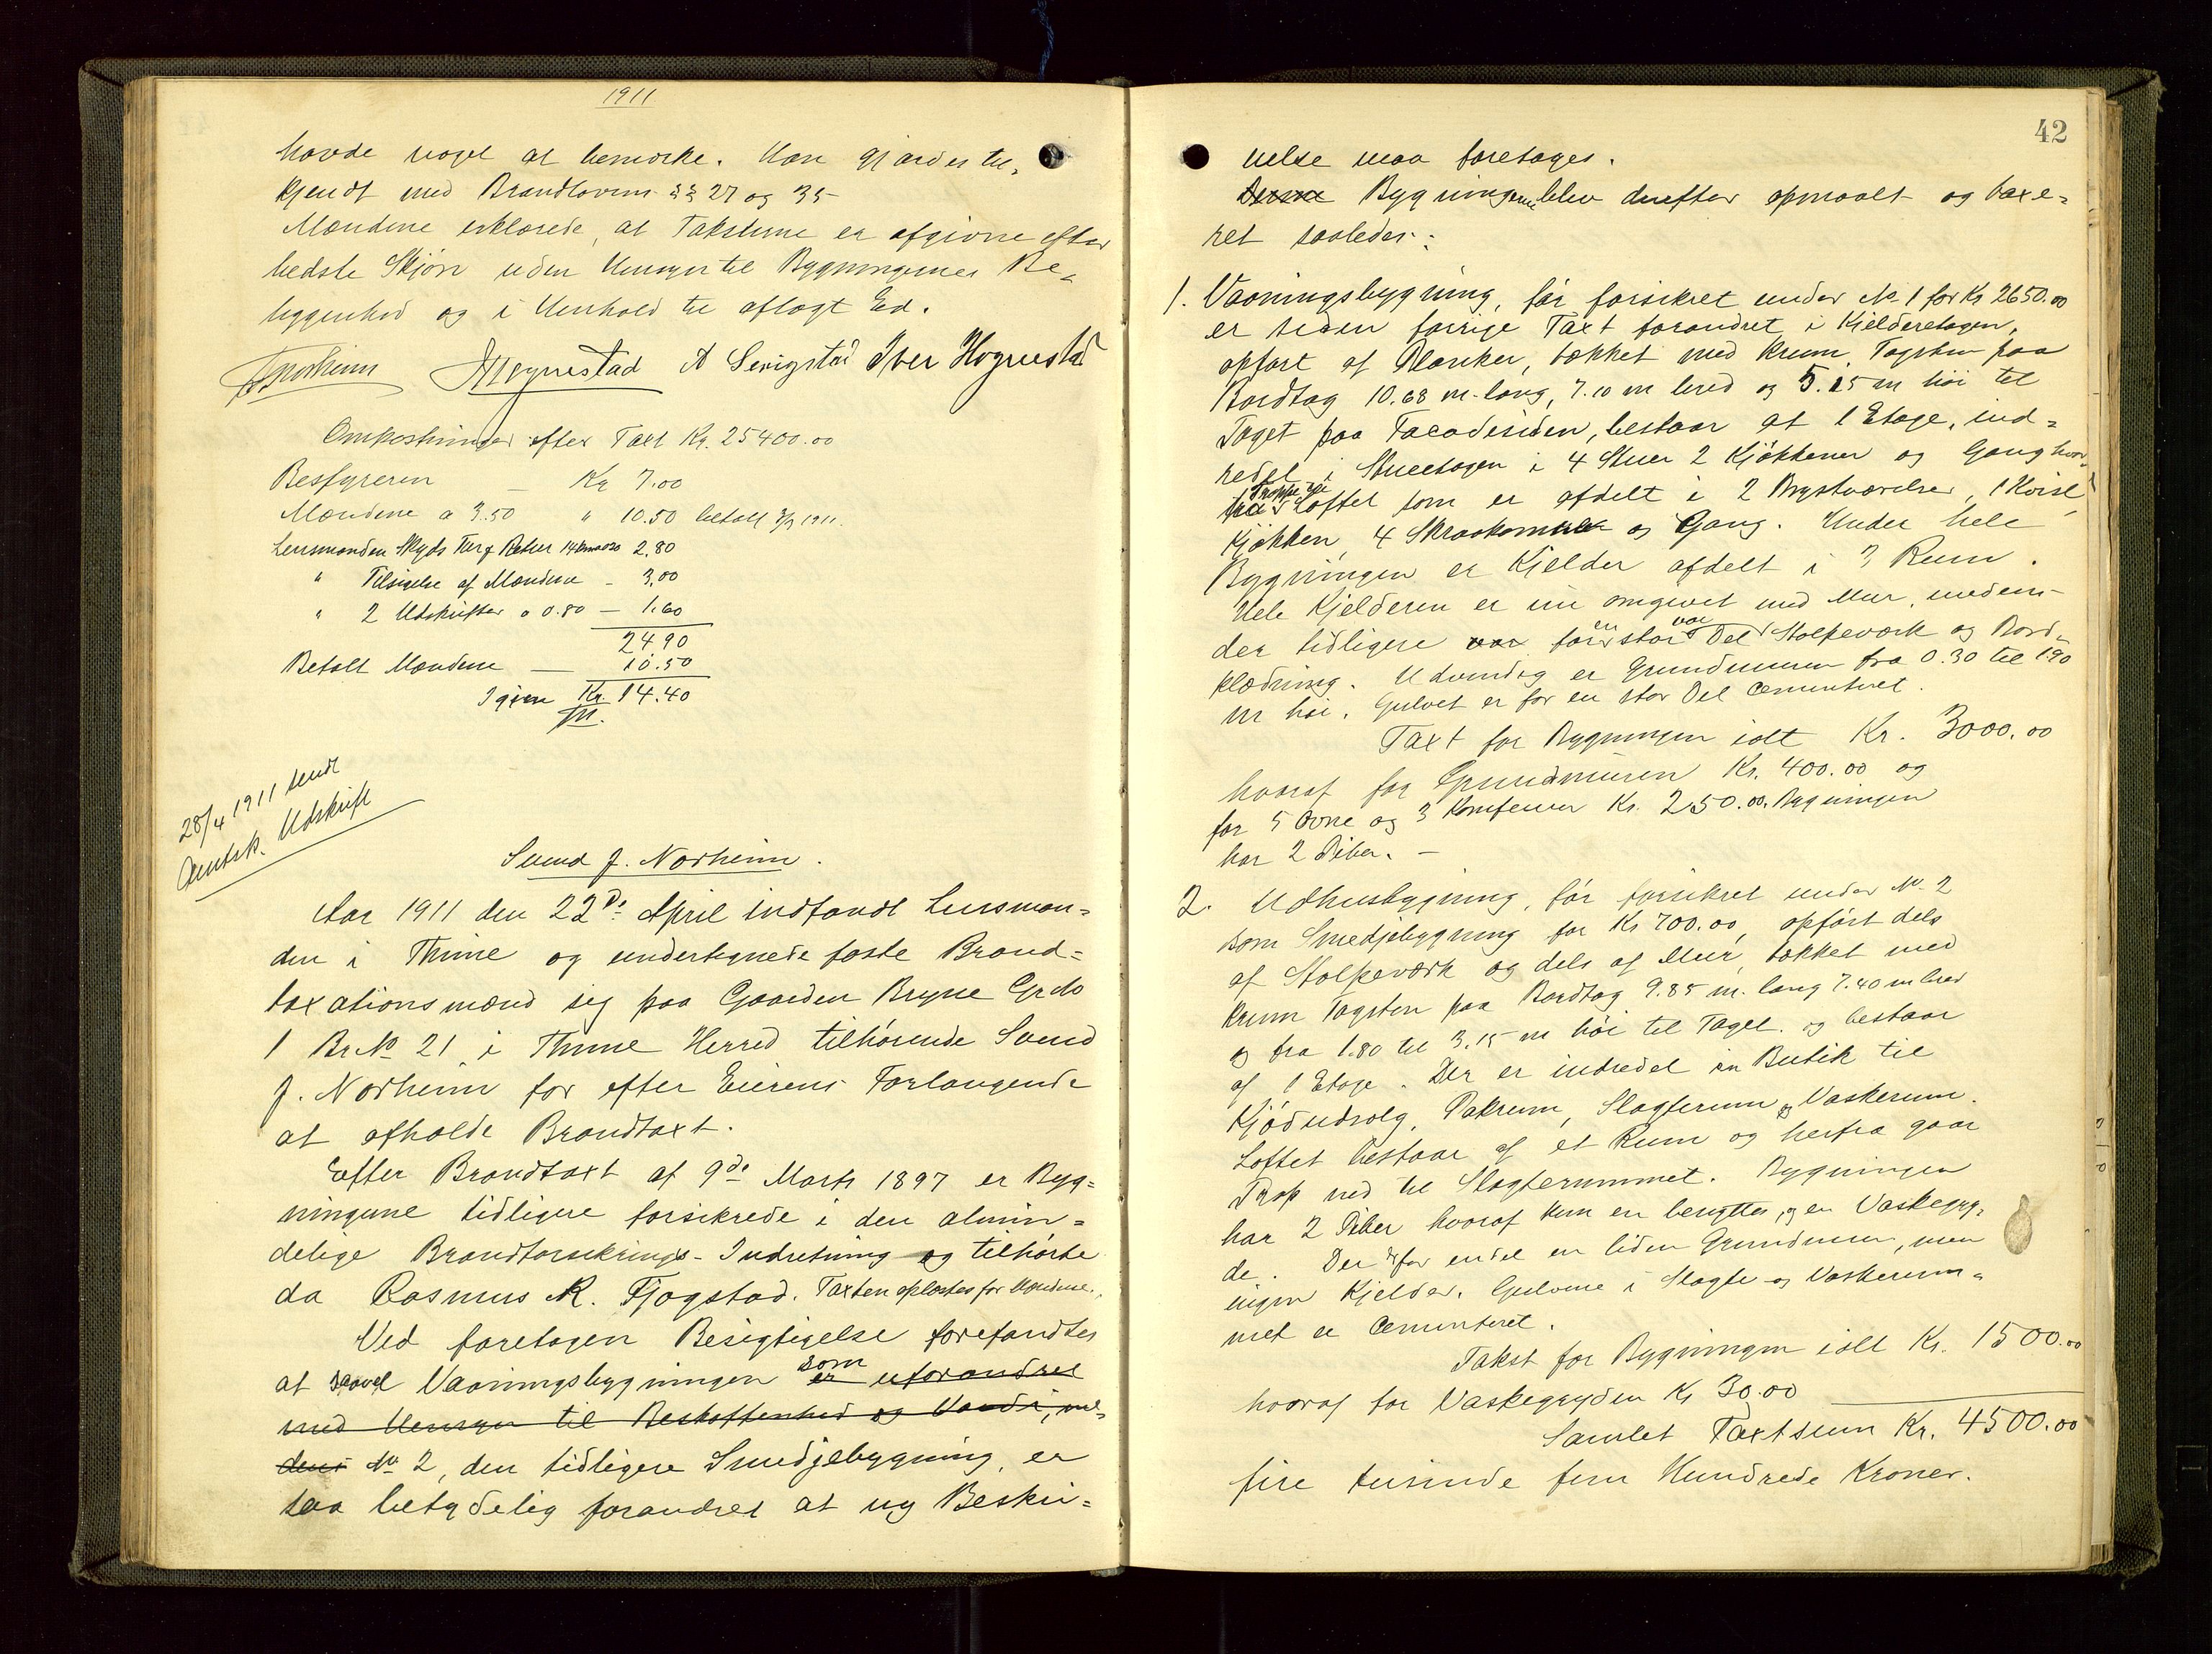 1911
havde noget at bemærke. Han gjordes til-
kjendt med Brandlovens §§ 27 og 35
Mændene erklærede, at Taksterne er afgivne efter
bedste Skjøn uden Hensyn til Bygningernes Be-
liggenhed og i Henhold til aflagt Ed.
A Serigstad Iver Hognestad
Omkostninger efter Taxt Kr. 25400.00
Bestyreren — Kr 7.00
Mændene a 3.50 " 10.50 betalt 3/7 1911.
Lensmanden Skyds Tur & Retur 14 km a 020 2.80
" Tilsigelse af Mændene - 3,00
" 2 Udskrifter a 0.80 — 1.60
24.90
Betalt Mændene — 10.50
Igjen Kr. 14.40
28/4 1911 sendt
Amtsk. Udskrift
Svend J. Norheim.
Aar 1911 den 22de April indfandt Lensman-
den i Thime og undertegnede faste Brand-
taxationsmænd sig paa Gaarden Bryne Grdo
1 Br No 21 i Thime Herred tilhørende Svend
J. Norheim for efter Eierens Forlangende
at afholde Brandtaxt.
Efter Brandtaxt af 9de Marts 1897 er Byg-
ningerne tidligere forsikrede i den almin-
delige Brandforsikrings-Indretning og tilhørte
da Rasmus R. Fjogstad. Taxten oplæstes for Mændene.
Ved foretagen Besigtigelse forefandtes
at saavel Vaaningsbygningen som er uforandret
med Hensyn til Beskaffenhed og Værdi, me-
dens No 2, den tidligere Smedjebygning, er
saa betydelig forandret at ny Beskri-
42
velse maa foretages.
Denne Bygningerne blev derefter opmaalt og taxe-
ret saaledes:
1. Vaaningsbygning, før forsikret under No 1 for Kr 2650.00
er siden forrige Taxt forandret i Kjelderetagen,
opført af Planker, tækket med krum Tagsten paa
Bordtag 10.68 m. lang, 7.10 m bred og 5.15 m høi til
Taget paa Facadesiden, bestaar af 1 Etage, ind-
redet i Stueetagen i 4 Stuer 2 Kjøkkener og Gang hvor-
fra Trappe til Loftet som er afdelt i 2 Brystværelser, 1 Kvist,
Kjøkken, 4 Skraakammer og Gang. Under hele
Bygningen er Kjelder afdelt i 3 Rum.
Hele Kjelderen er nu omgivet med Mur, medens
der tidligere var for en stor Del var Stolpeværk og Bord-
klædning. Udvendig er Grundmuren fra 0.30 til 1.90
m høi. Gulvet er for en stor Del cementeret.
Taxt for Bygningen ialt Kr. 3000.00
hvoraf for Grundmuren Kr. 400.00 og
for 5 Ovne og 3 Komfurer Kr. 250.00. Bygningen
har 2 Piber. —
2. Udhusbygning, før forsikret under No 2
som Smedjebygning for Kr 700.00, opført dels
af Stolpeværk og dels af Mur, tækket med
krum Tagsten paa Bordtag 9.85 m. lang 7.40 m bred
og fra 1.80 til 3.15 m høi til Taget. og bestaar
af 1 Etage. Der er indredet en Butik til
Kjødudsalg, Pakrum, Slagterum og Vaskerum.
Loftet bestaar af et Rum og herfra gaar
Trap ned til Slagterummet. Bygningen
har 2 Piber hvoraf kun en benyttes, og en Vaskegry-
de. Der er for endel en liden Grundmur, men
ingen Kjelder. Gulvene i Slagte og Vaskerum-
met er cementeret.
Takst for Bygningen ialt Kr. 1500.00
hvoraf for Vaskegryden Kr 30.00
Samlet Taxtsum Kr. 4500.00
fire tusinde fem Hundrede Kroner.